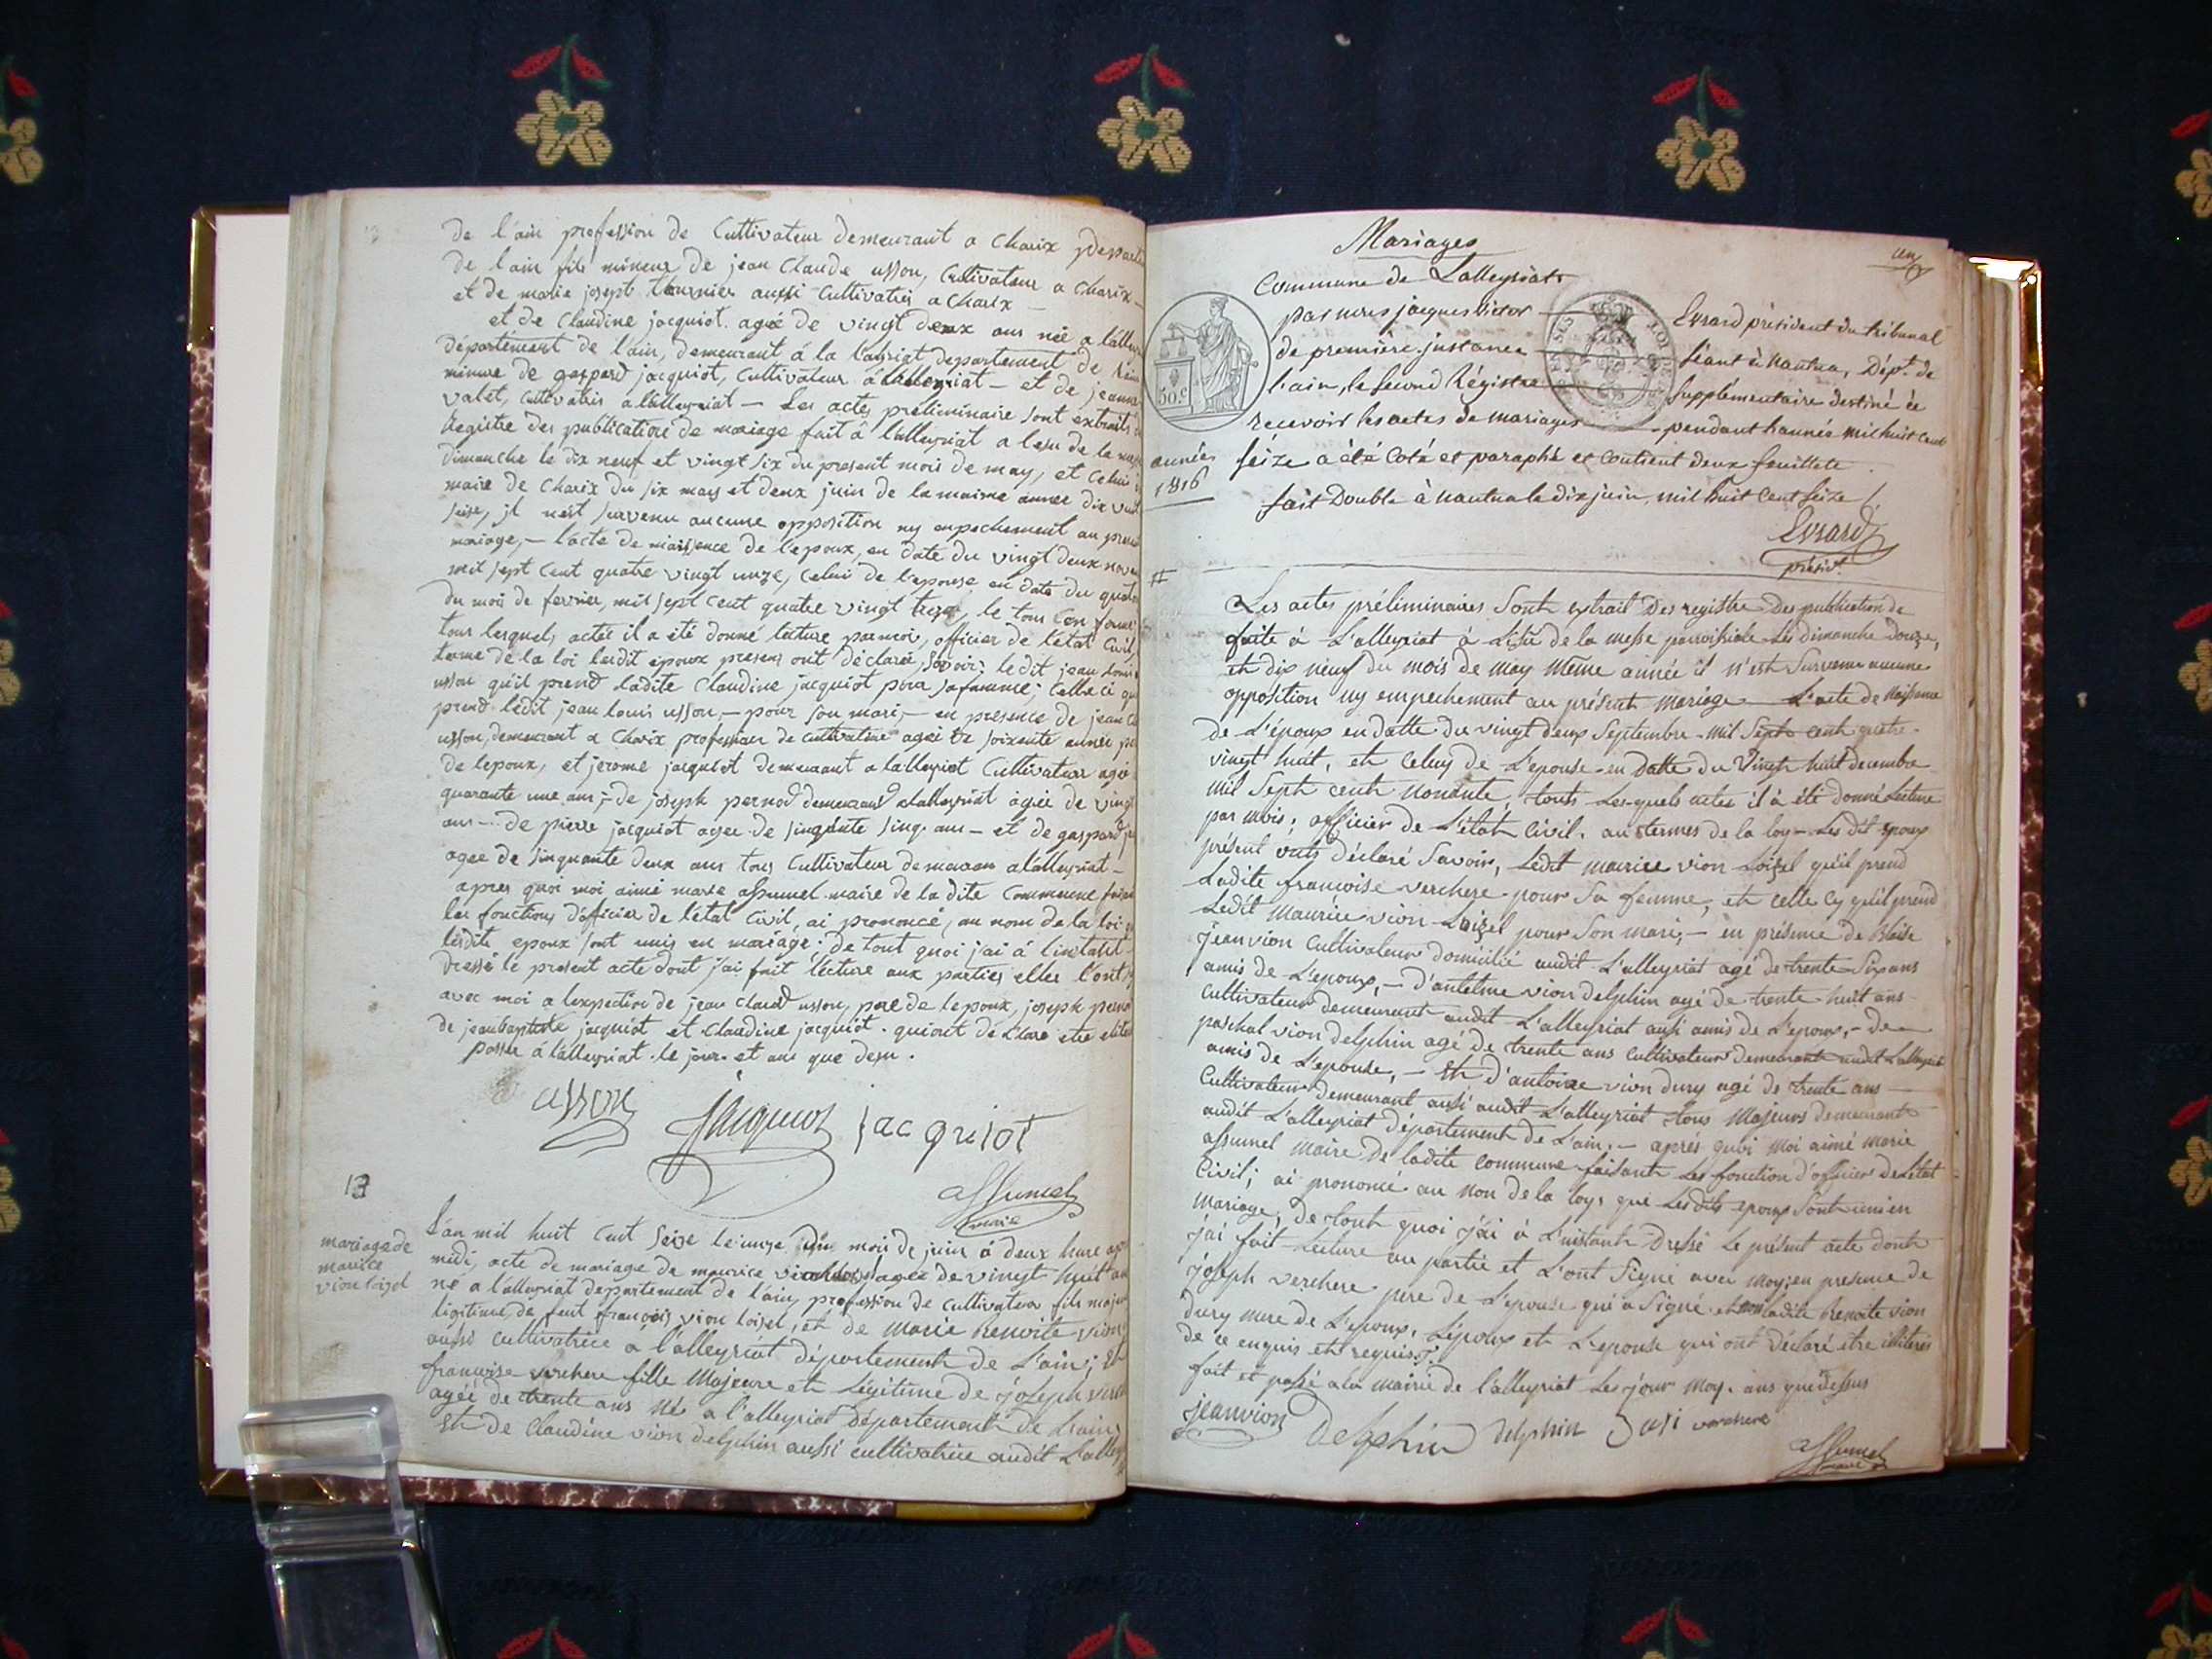 de l'ain profession de Cultivateur demeurant a Charix
de l'ain fils mineur de jean Claude usson, Cultivateur a Charix —
et de marie joseph tournier aussi Cultivatris a Charix —
et de Claudine jacquiot. agée de vingt deux ans née a
département de l'ain, demeurant á la l'alleyriat departement de
mineure de gaspard jacquiot, Cultivateur á lalleyriat — et de jeanne
valet, cultivatris a lalleyriat — Les actes préliminaire sont extraits
Registre des publications de mariage fait á lalleyriat a lesu de la
dimanche le dix neuf et vingt six du present mois de may, et celui
maire de Charix du six mars et deux juin de la maime annee dix
seise, jl nest survenu aucune opposition ny enpechement au
mariage, — l'acte de naissence de l'epoux, en date du vingt deux
mil sept cent quatre vingt unze, celui de l'epouse en date du
du mois de fevrier, mil sept cent quatre vingt treze, le tous
tous lesquels actes il a été donné lecture parmoi, officier de l'état Civil
terme de la loi lesdit époux presens ont déclarée, savoir; ledit jean Louis
usson qu'il prend ladite Claudine jacquiot pour safamme; Celle ci
prend lédit jean louis usson, — pour son mari, — en presence de jean
usson, demeurant a Charix profession de cultivateur agée de soixente année
de lepoux, et jerome jacquiot demeurant a lalleyriat Cultivateur agée
quarante une ans, — de joseph pernod demeurand alalleyriat agée de vingt
ans — de pierre jacquiot agee de singuante sing. ans — et de gaspard
agee de singuante deux ans tous Cultivateur demeurans a lalleyriat —
apres quoi moi aimé marie assumel maire de la dite Commune
les fonctions d'officier de l'état civil, ai prononcé, au nom de la loi
lesdits epoux sont unis en mariage; de tout quoi j'ai á linstant
dressé le present acte dont j'ai fait lecture aux parties elles l'ont
avec moi a lexception de jean Claud usson, pere de lepoux, joseph
de jeanbaptiste jacquiot et Claudine jacquiot. quiont declare etre
passer á lalleyriat. le jour et ans que desu.
usson
Jacquiot
jacquiot
assumel
maire
13
mariage de
maurice
vion loizel
L'an mil huit cent seize le unze du mois de juin á deux heure
midi, acte de mariage de maurice agée de vingt huit
né a l'alleyriat département de lain, profession de cultivateur fils majeur
légitime, de feut françois vion loizel, et de marie renoite vion
aussi cultivatrice a l'alleyriat département de L'ain; Et
françoise verchere fille Majeure et Légitime de joseph
agée de trente ans née a l'alleyriat département de Lain
Et de Claudine vion delphin aussi cultivatrice audit
Mariages
Commune de Lalleyriat
par nous jacques Victor — Evrard président du tribunal
de première jnstance — séant à Nantua, Dépt. de
l'ain, le second Régistre — supplémentaire destiné à
recevoir les actes de mariages — pendant l'année mil huit cent
seize a été coté et paraphé et contient deux feuillets
année
1816
50.c
fait Double à Nantua le dix juin, mil huit cent seize
Evrard
présidt.
#
Les actes préliminaires Sont extrait des registre Des publication de
faite à L'alleyriat à L'isu de la Messe parroissiale Les dimanche Douze,
et dix neuf du mois de may meme année il n'est Survenu aucune
opposition ny empechement au présent mariage — L'acte de Naissance
de L'époux en datte du vingt deux Septembre. mil Sept cent quatre-
vingt huit, et celuy de L'epouse. en Datte du vingt huit decembre
mil Sept cent Nonante, touts Les quels actes il à été donné Lecture
par mois; officier de L'état civil. aux termes de la loy — Les dit epoux
présent onts Déclaré Savoir, Ledit maurice vion Loizel qu'il prend
Ladite françoise verchere pour Sa femme, et celle cy qu'il prend
Ledit maurice vion Loizel pour Son mari, — en présence de Blaise
jeanvion cultivateur domicilié audit L'alleyriat agé de trente Six ans
amis de L'epoux, — d'antelme vion delphin agé de trente-huit ans
Cultivateur demeurant audit L'alleyriat aussi amis de L'epoux, — de
paschal vion delphin agé de trente ans cultivateur demeurant audit Lalleyriat
amis de L'epouse, — Et d'antoine vion dury agé de trente ans —
Cultivateur demeurant aussi audit L'alleyriat tous Majeurs demeurants
audit L'alleyriat département de L'ain. — aprés quoi moi aimé marie
assumel maire de ladite commune faisant Les fonction d'officier de L'état
Civil; ai prononcé au Non de la loy, que Lesdits epoux Sont unis en
Mariage, de tout quoi j'ai à L'instant Dressé Le présent acte dont
j'ai fait Lecture au partie et L'ont Signé avec moy; en presence de
joseph verchere pere de L'epouse qui a Signé et non ladite Renoite vion
dury mere de L'epoux, L'époux et L'epouse qui ont déclaré etre illiteres
de ce enquis et requis
fait et passé a la mairie de l'alleyriat Les jour Moy. ans que dessus
jeanvion
Delphin
delphin
verchere
assumel
maire